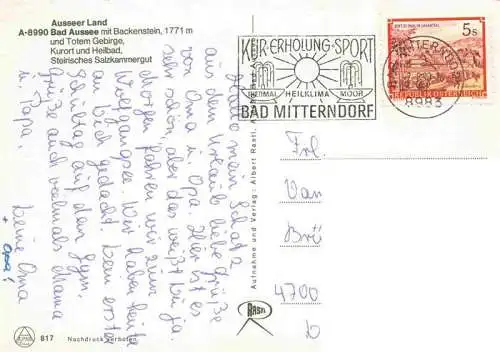 Ausseer Land
A-8990 Bad Aussee mit Backenstein, 1771 m
und Totem Gebirge,
Kurort und Heilbad,
Steirisches Salzkammergut
KUR·ERHOLUNG·SPORT
THERMAL HEILKLIMA MOOR
BAD MITTERNDORF
5s
REPUBLIK ÖSTERREICH
BAD MITTERNDORF
8983
Hallo mein Schatz
aus dem Urlaub liebe Grüße
von Oma u. Opa. Hier ist es
sehr schön aber das weißt Du ja.
Morgen fahren wir zum
Wolfgangsee. Wir haben heute
an Dich gedacht. Dein erster
Schultag auf dem Gym.
Grüße auch vielmals Mama
u. Papa.
Deine Oma
+ Opa!
Aufnahme und Verlag: Albert Rastl,
Frl.
Van
Brü
4700
D
RASTL
817 Nachdruck verboten